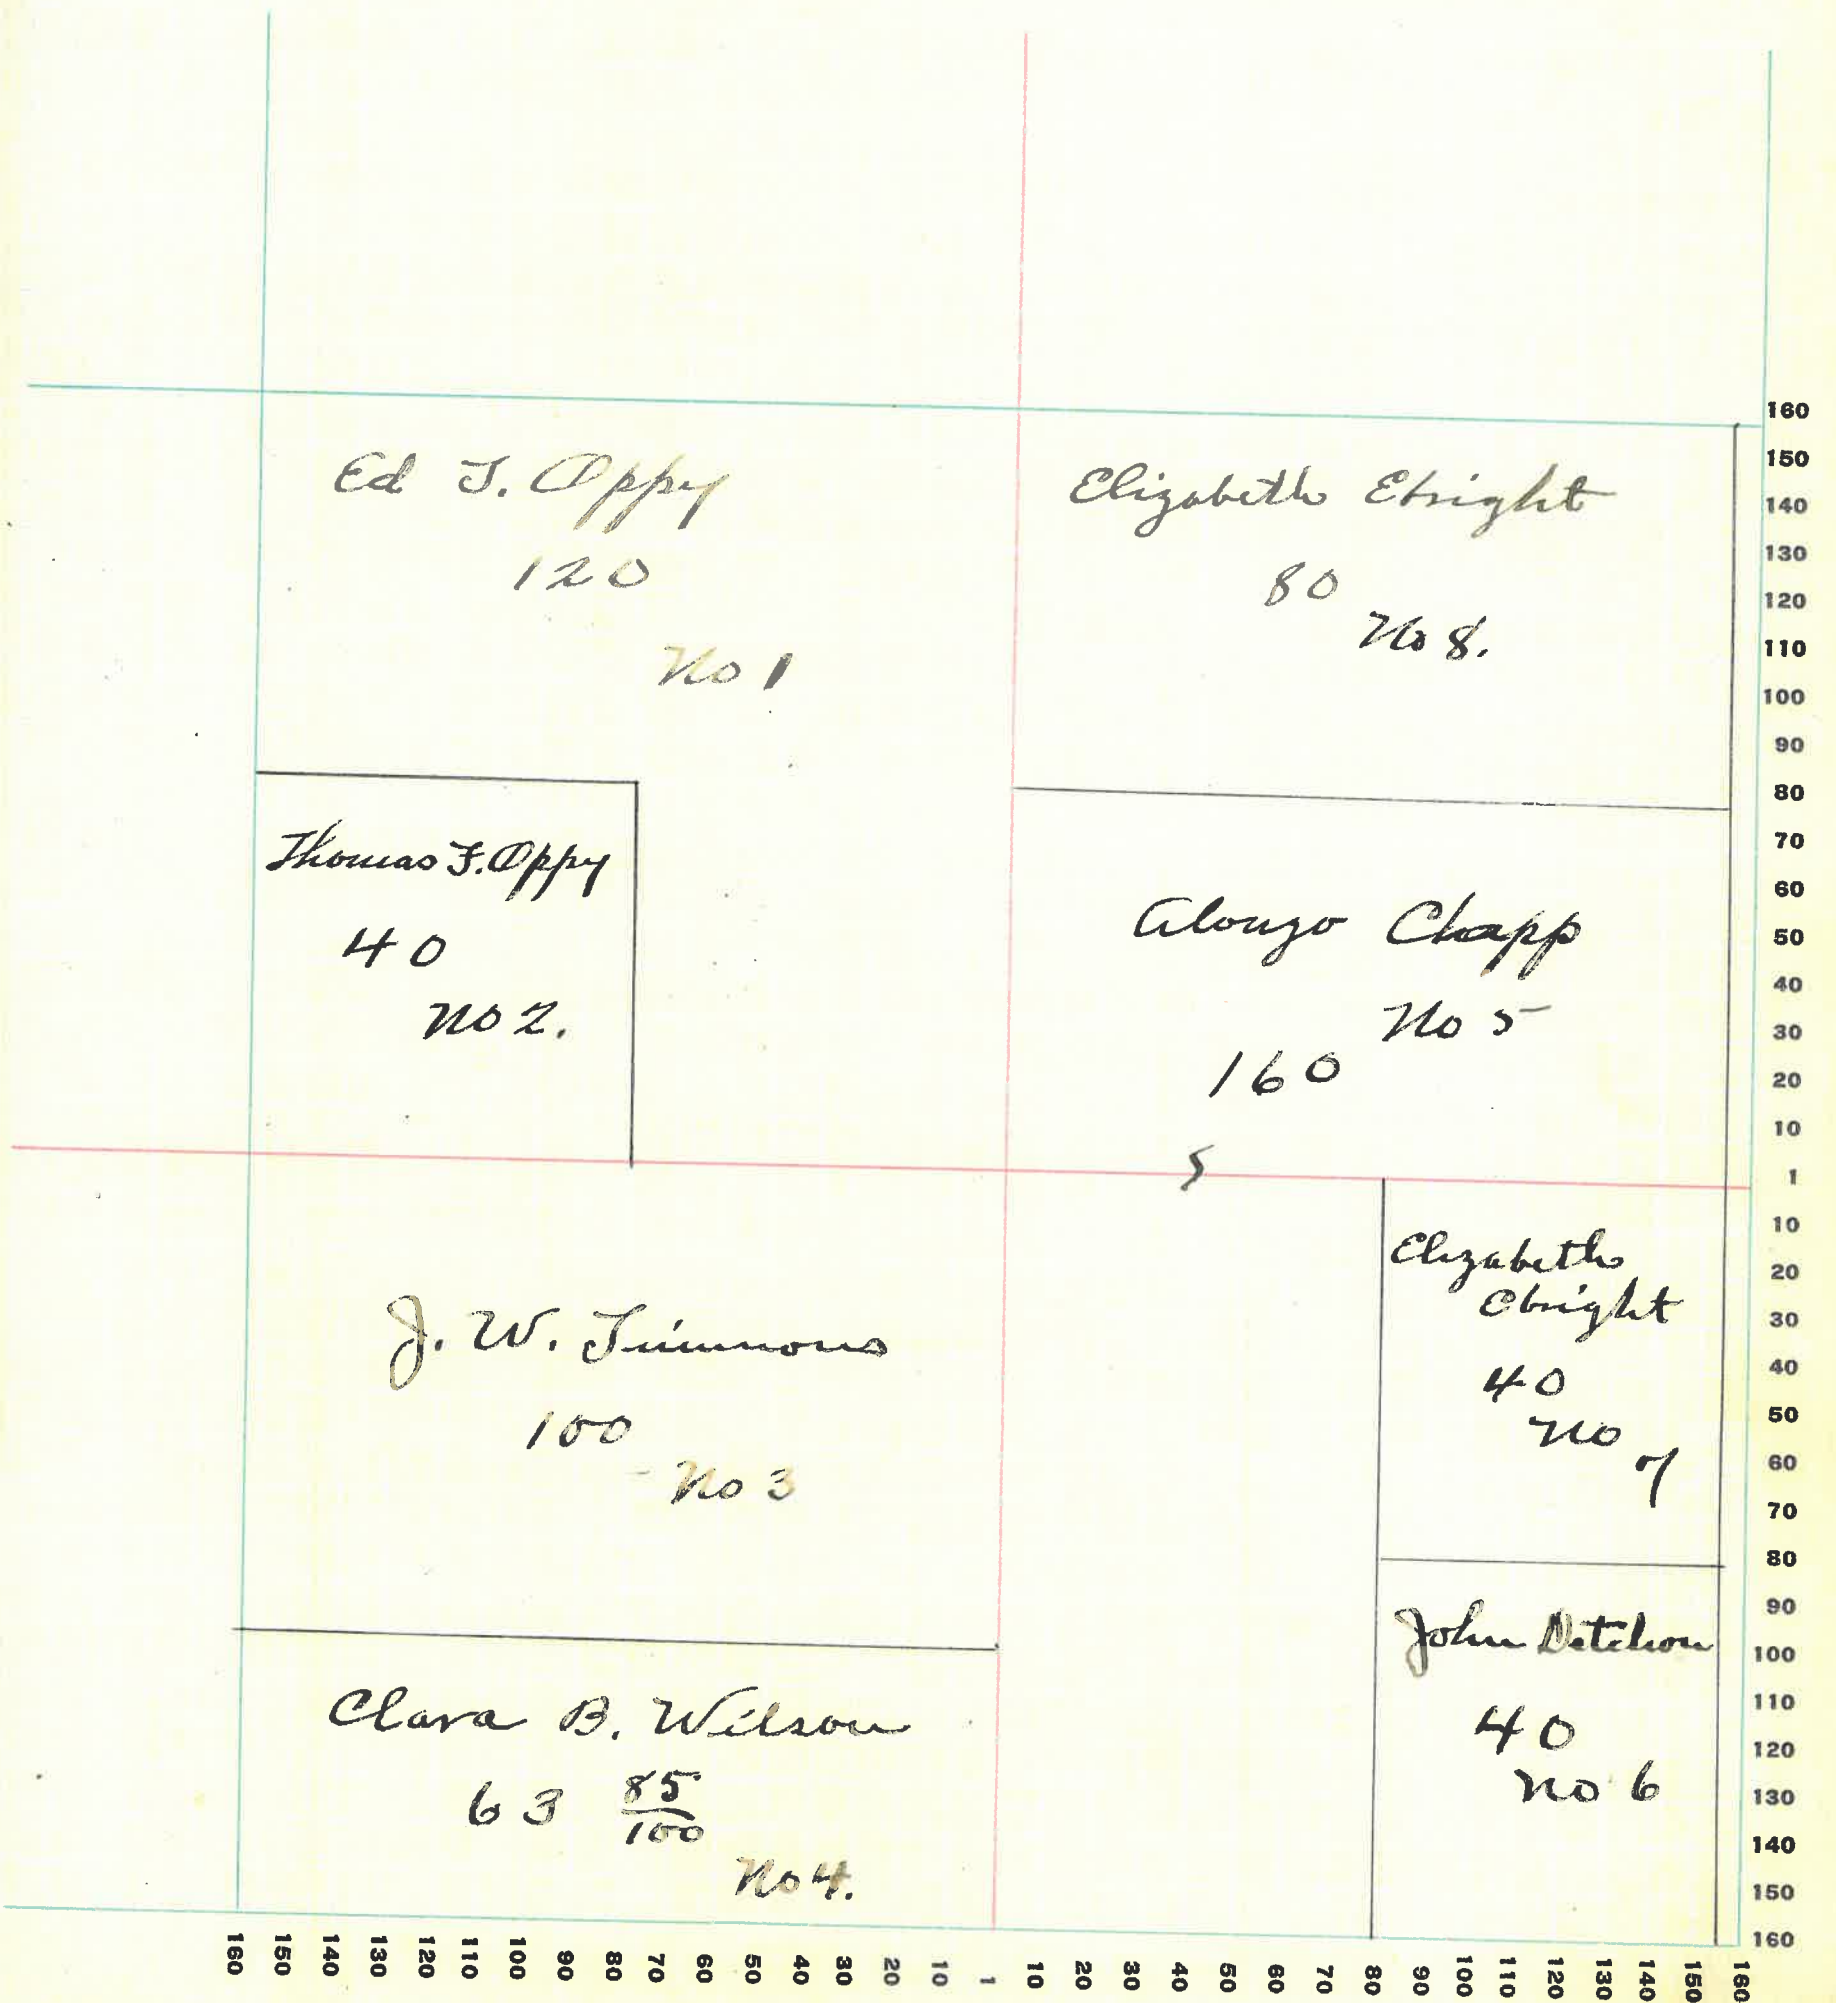 Ed T. Oppy
120
No 1
Elizabeth Ebright
80
No 8.
Thomas F. Oppy
40
No 2.
Alonzo Clapp
No 5
160
5
J. W. Timmons
100
No 3
Elizabeth
Ebright
40
No
7
Clara B. Wilson
63 85/100
No 4.
John Detchon
40
No 6
160
150
140
130
120
110
100
90
80
70
60
50
40
30
20
10
1
10
20
30
40
50
60
70
80
90
100
110
120
130
140
150
160
160 150 140 130 120 110 100 90 80 70 60 50 40 30 20 10 1 10 20 30 40 50 60 70 80 90 100 110 120 130 140 150 160